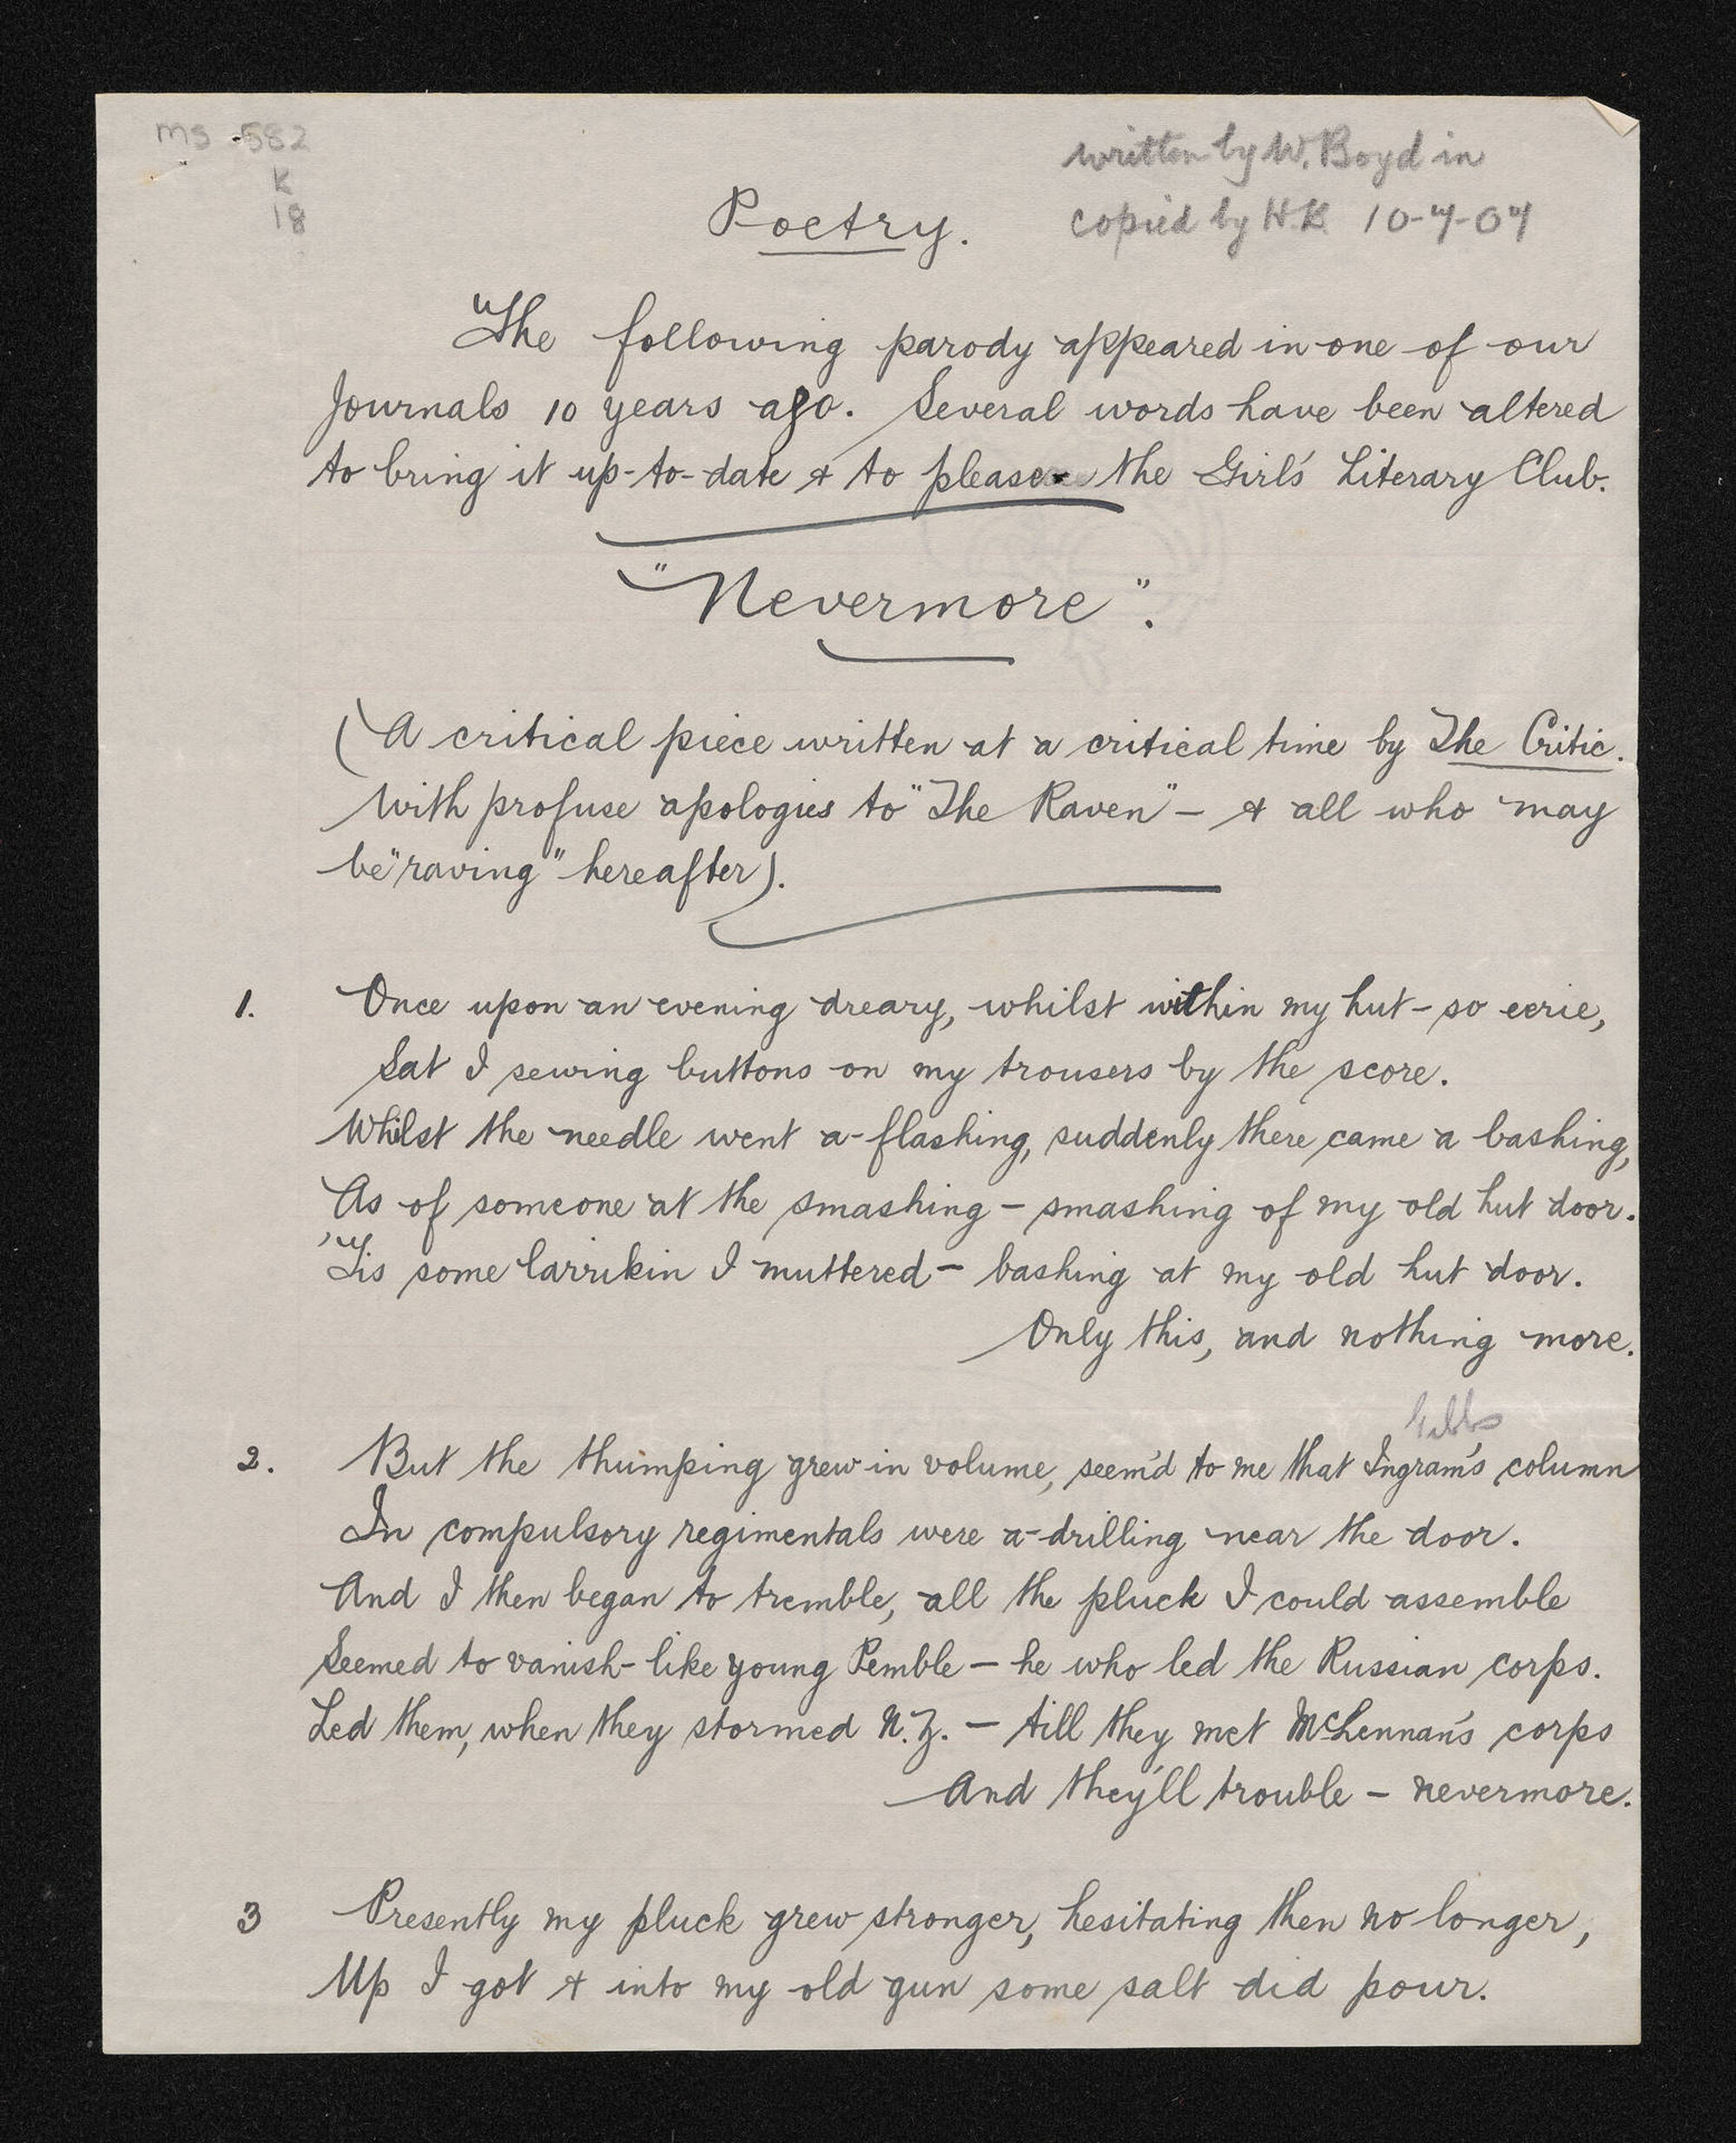 ms 582
K
18
written by W. Boyd in
copied by H.K 10-7-07
Poetry.
"The following parody appeared in one of our
Journals 10 years ago. Several words have been altered
to bring it up-to-date & to please the Girl's Literary Club.
"Nevermore".
(A critical piece written at a critical time by The Critic.
With profuse apologies to "The Raven" — & all who may
be "raving" hereafter).
1. Once upon an evening dreary, whilst within my hut - so eerie,
Sat I sewing buttons on my trousers by the score.
Whilst the needle went a-flashing, suddenly there came a bashing,
As of someone at the smashing — smashing of my old hut door.
'Tis some larrikin I muttered — bashing at my old hut door.
Only this, and nothing more.
Gibbs
2. But the thumping grew in volume, seem'd to me that Ingram's column
In compulsory regimentals were a-drilling near the door.
And I then began to tremble, all the pluck I could assemble
Seemed to vanish - like young Pemble — he who led the Russian corps.
Led them, when they stormed N.Z. — till they met McLennan's corps
And they'll trouble — nevermore.
3 Presently my pluck grew stronger, hesitating then no longer,
Up I got & into my old gun some salt did pour.